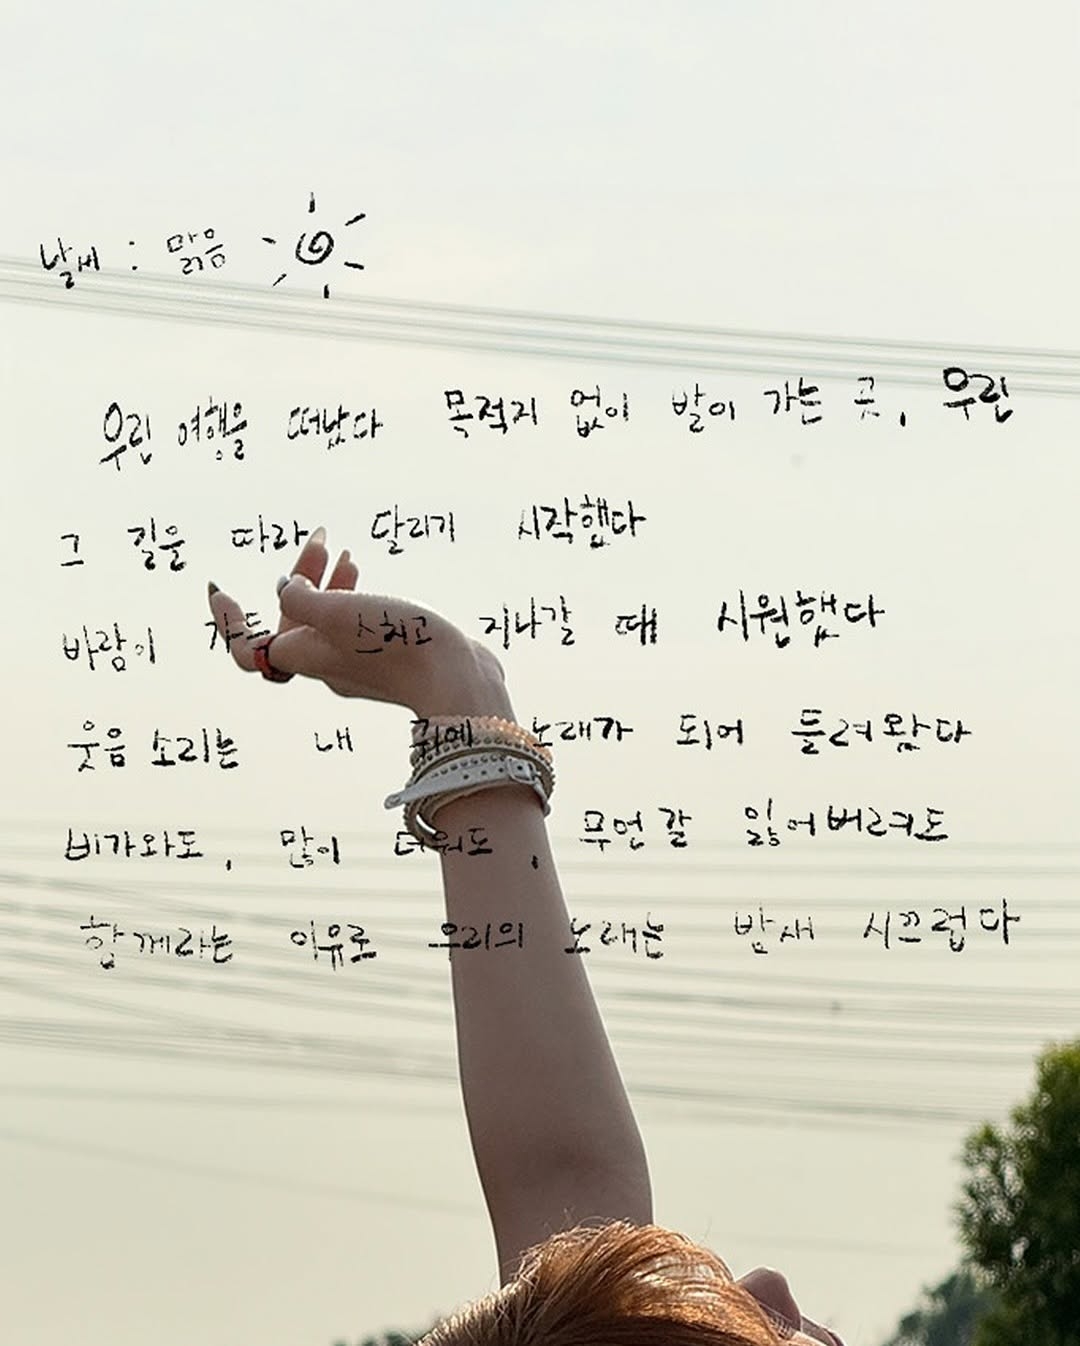 날씨 : 맑음
우린 여행을 떠났다 목적지 없이 발이 가는 곳, 우린
그 길을 따라 달리기 시작했다
바람이 가득 스치고 지나갈 때 시원했다
웃음 소리는 내 귀에 노래가 되어 들려왔다
비가와도, 많이 더워도, 무언갈 잃어버려도
함께라는 이유로 우리의 노래는 밤새 시끄럽다